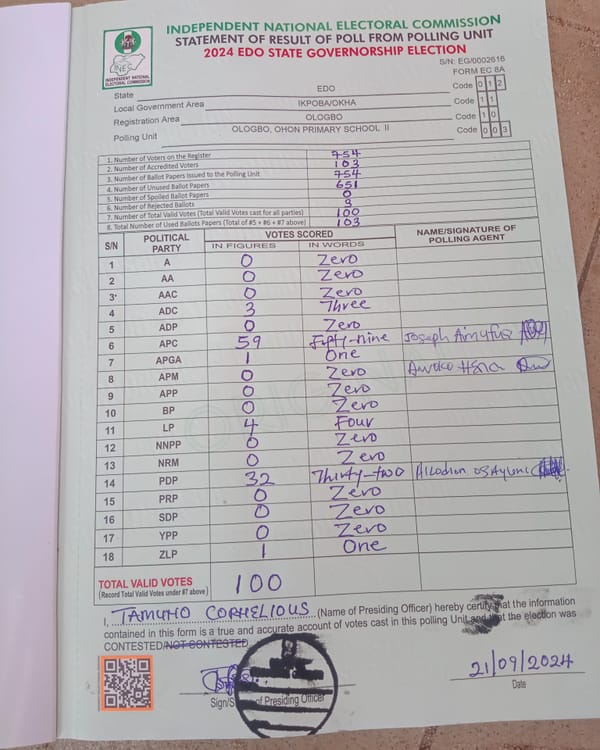 INDEPENDENT NATIONAL ELECTORAL COMMISSION
STATEMENT OF RESULT OF POLL FROM POLLING UNIT
2024 EDO STATE GOVERNORSHIP ELECTION
INEC
INDEPENDENT NATIONAL ELECTORAL COMMISSION
S/N: EG/0002616
FORM EC 8A
State EDO Code 0 1 2
Local Government Area IKPOBA/OKHA Code 1 1
Registration Area OLOGBO Code 1 0
Polling Unit OLOGBO, OHON PRIMARY SCHOOL II Code 0 0 3
1. Number of Voters on the Register 754
2. Number of Accredited Voters 103
3. Number of Ballot Papers Issued to the Polling Unit 754
4. Number of Unused Ballot Papers 651
5. Number of Spoiled Ballot Papers 0
6. Number of Rejected Ballots 3
7. Number of Total Valid Votes (Total Valid Votes cast for all parties) 100
8. Total Number of Used Ballots Papers (Total of #5 + #6 + #7 above) 103
S/N POLITICAL PARTY VOTES SCORED NAME/SIGNATURE OF POLLING AGENT
IN FIGURES IN WORDS
1 A 0 Zero
2 AA 0 Zero
3 AAC 0 Zero
4 ADC 3 Three
5 ADP 0 Zero
6 APC 59 Fifty-nine Joseph
7 APGA 1 One
8 APM 0 Zero
9 APP 0 Zero
10 BP 0 Zero
11 LP 4 Four
12 NNPP 0 Zero
13 NRM 0 Zero
14 PDP 32 Thirty-two
15 PRP 0 Zero
16 SDP 0 Zero
17 YPP 0 Zero
18 ZLP 1 One
TOTAL VALID VOTES 100
(Record Total Valid Votes under #7 above)
I, TAMUNO CORNELIOUS (Name of Presiding Officer) hereby certify that the information
contained in this form is a true and accurate account of votes cast in this polling Unit and that the election was
CONTESTED/NOT CONTESTED
21/09/2024
of Presiding Officer
Date